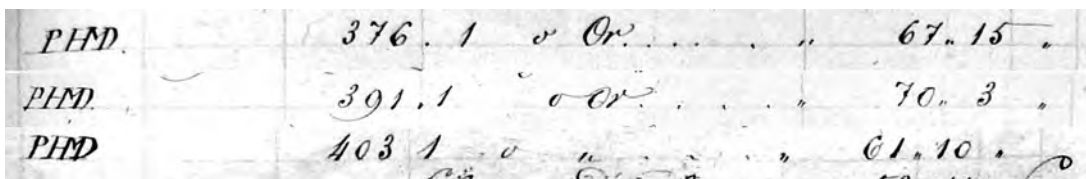 PHD. 376. 1 o Or. . . . . " 67 " 15 "
PHD. 391. 1 o Or . . . . " 70 " 3 "
PHD 403 1 o " . . . . " 61 " 10 "